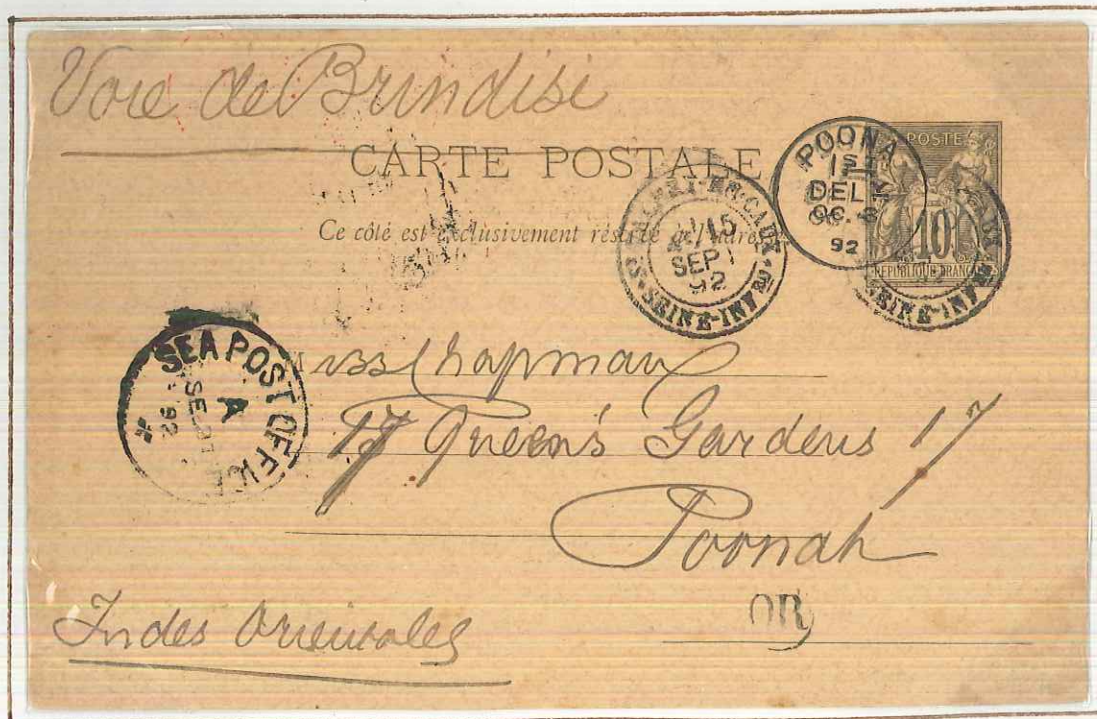 Voie de Brindisi
CARTE POSTALE
Ce côté est exclusivement réservé à l'adresse
POONA
1ST
DEL
OC. 3
92
POSTES
10
REPUBLIQUE FRANÇAISE
EN-CAUX
15
SEPT
92
SEINE-INFRE
CAUX
SEINE-INFRE
SEA POST OFFICE
A
SE
92
Miss Chapman
17 Queen's Gardens 17
Poonah
Indes Orientales
OR